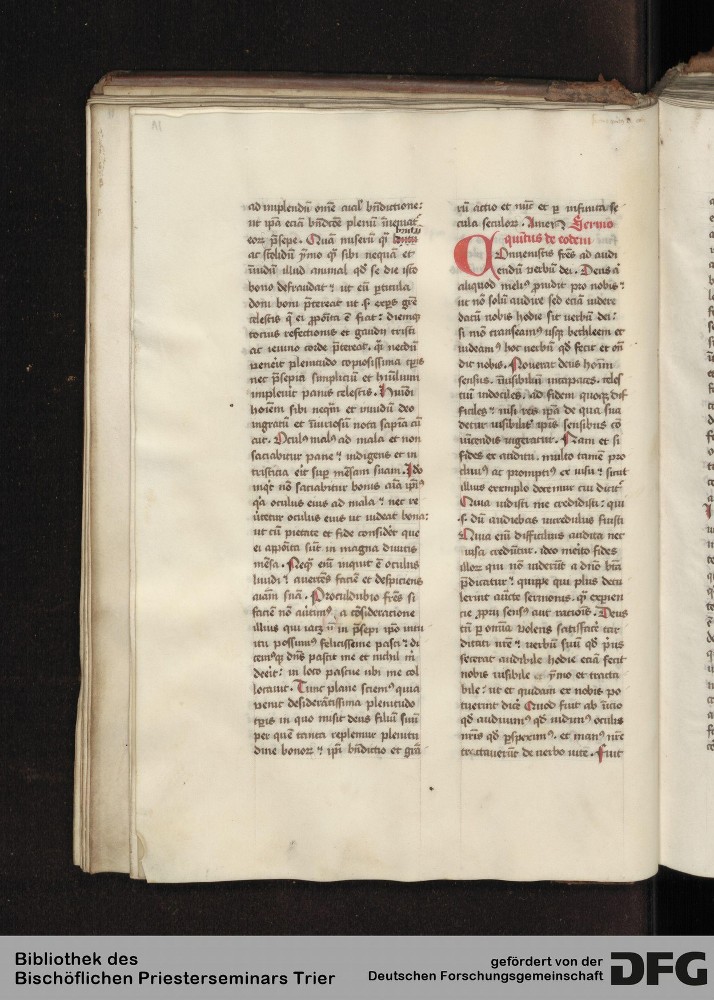 ad implendū om̄e aīal b̄ndictione:
ut ip̄a eciā b̄ndc̄oē plenū īueniat
eorꝝ p̄sepe. Quā miserū qͣꝫ
brutū
ac stolidū ymo qͣꝫ sibi nequā et
īuidū illud animal qd̄ se die isto
bono defraudat ⁊ ut eū particula
doni boni p̄tereat ut .s. exp̄s grē
celestis q̄ ei ꝓpōita ē fiat: diemqꝫ
tocius refectionis et gaudii tristi
ac ieiuno corde p̄tereat. qͣꝫ necdū
venerit plenitudo copiosissima tp̄is
nec p̄sepia simpliciū et humiliuꝫ
impleuit panis celestis. Huiꝰmōi
hoīem sibi neqꝫ et inuidū deo
ingratū et īiuriosū nota sapīa cū
ait. Oculus malꝰ ad mala et non
saciabitur pane ⁊ indigens et in
tristicia erit suꝑ mēsam suam. Ido
inqͥt nō saciabitur bonis aīa ipiꝰ
qͥa oculus eius ad mala ⁊ nec re
uertetur oculus eius ut uideat bona:
ut cū pietate et fide consideret que
ei appōita sūt in magna diuitis
mēsa. Neqꝫ enī inquit ē oculus
liuidi ⁊ auertēs faciē et despiciens
aīam suā. Proculdubio frēs si
faciē nō auertimꝰ a cōsideracione
illius qui iacꝫ in p̄sepi ip̄o intu
itu possimꝰ felicissime pasci ⁊ di
cemꝰqꝫ dn̄s pascit me et nichil m̄
deerit: in loco pascue ubi me col
locauit. Tunc plane sciemꝰ quia
uenit desiderātissima plenitudo
tp̄is in quo misit deus filiū suū
per quē tanta replemur plenitu
dine bonorꝝ ⁊ ip̄i b̄ndictio et grā
rū actio et nūc et ꝑ infinita se
cula seculorꝝ. Amen Sermo
quītus de eodem
Conuenistis frēs ad audi
endū uerbū dei. Deus aū
aliquod meliꝰ ꝓuidit pro nobis:
ut nō solū audire sed eciā uidere
datū nobis hodie sit uerbū dei:
si mō transeamꝰ usqꝫ bethleem et
uideamꝰ hoc uerbū qd̄ fecit et osī
dit nobis. Nouerat deus homī
sensus. īuisibiliū incapaces. celes
tiū indociles. ad fidem quoqꝫ dif
ficiles ⁊ nisi res ip̄a de qua sua
detur uisibilis ip̄is sensibus cō
uincendis ingeratur. Nam et si
fides ex auditu. multo tamē pro
cliuiꝰ ac promptiꝰ ex uisu ⁊ sicut
illius exemplo docemur cui dicitͬ
Quia uidisti me credidisti: qui
.s. dū audiebas incredulus fuisti
Quia enī difficilius audita nec
uisa credūtur. ideo merito fides
illorꝝ qui nō uiderūt a dn̄o bīa
p̄dicatur ⁊ quippe qui plus detu
lerint auctoritati sermonis. qͣꝫ experien
cie ꝓprii sensꝰ aut racionis. Deus
tn̄ ꝑ omīa volens satisfacere tar
ditati nrē ⁊ uerbū suū qd̄ priꝰ
fecerat audibile hodie eciā fecit
nobis uisibile et ymo et tracta
bile: ut et quidam ex nobis po
tuerint dicere Quod fuit ab īicio
qd̄ audiuimꝰ qd̄ uidimꝰ oculis
nr̄is qd̄ ꝑspeximꝰ. et manꝰ nrē
tractauerūt de uerbo uite. Fuit
Bibliothek des
Bischöflichen Priesterseminars Trier
gefördert von der
Deutschen Forschungsgemeinschaft
DFG